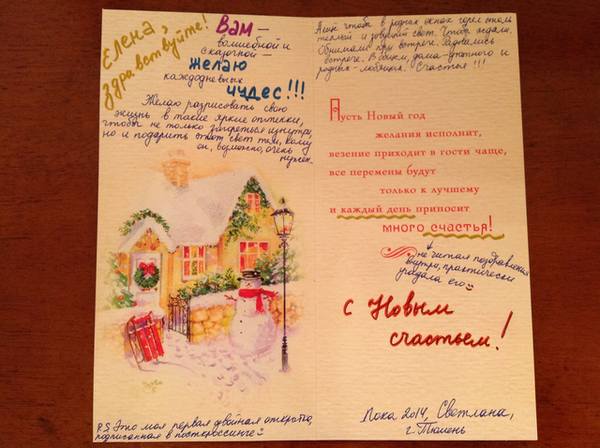 Елена,
здравствуйте!
Вам –
волшебной и
сказочной –
желаю
каждодневных
чудес!!!
Желаю разрисовать свою
жизнь в такие яркие оттенки,
чтобы не только загореться изнутри,
но и подарить этот свет тем, кому
он, возможно, очень
нужен.
P.S. Это моя первая двойная открытка,
подписанная в посткроссинге
А ещё чтобы в родных окнах горел столь
тёплый и зовущий свет. Чтобы ждали.
Обнимали при встрече. Радовались
встрече. В общем, дома – уютного и
родных – любящих. Счастья!!!
Пусть Новый год
желания исполнит,
везение приходит в гости чаще,
все перемены будут
только к лучшему
и каждый день приносит
много счастья!
не читая поздравления
внутри, практически
угадала его
С Новым
счастьем!
Пока 2014, Светлана,
г. Тюмень